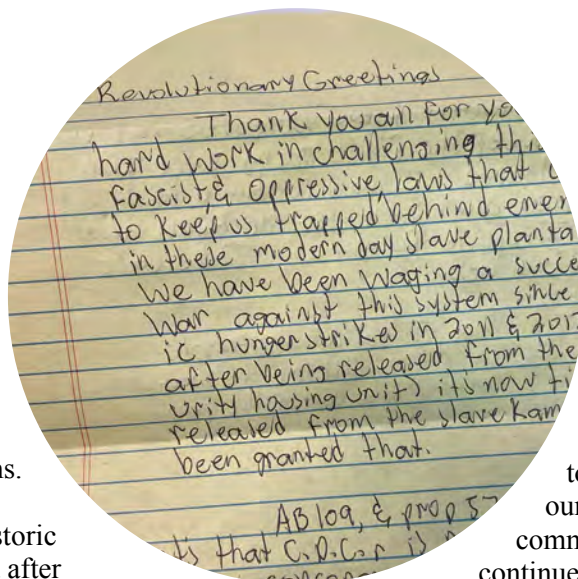 Revolutionary Greetings
Thank you all for yo
hard work in challenging thi
fascist, & oppressive laws that
to keep us trapped behind ene
in these modern day slave planta
We have been waging a succe
War against this system since
ic hungerstrikes in 2011 & 201
after being released from the
urity housing unit) it's now ti
released from the slave Kam
been granted that.
AB 109, & prop 57
ts that C.D.C.r is
ns.
storic
after
to
our
comm
continue